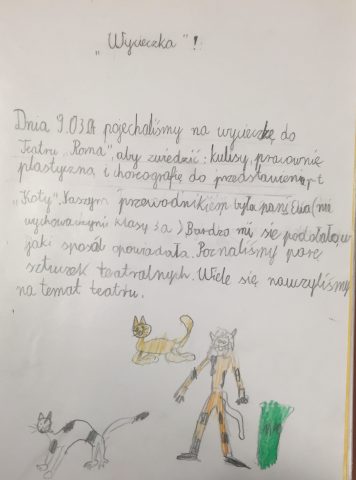 „Wycieczka"!
Dnia 9.03 pojechaliśmy na wycieczkę do
Teatru „Roma", aby zwiedzić: kulisy, pracownię
plastyczną i choreografię do przedstawienia pt
„Koty". Naszym przewodnikiem była pani Elia (nie
wychowawczyni klasy 3a) Bardzo mi się podobało, w
jaki sposób opowiadała. Poznaliśmy parę
sztuczek teatralnych. Wiele się nauczyliśmy
na temat teatru.